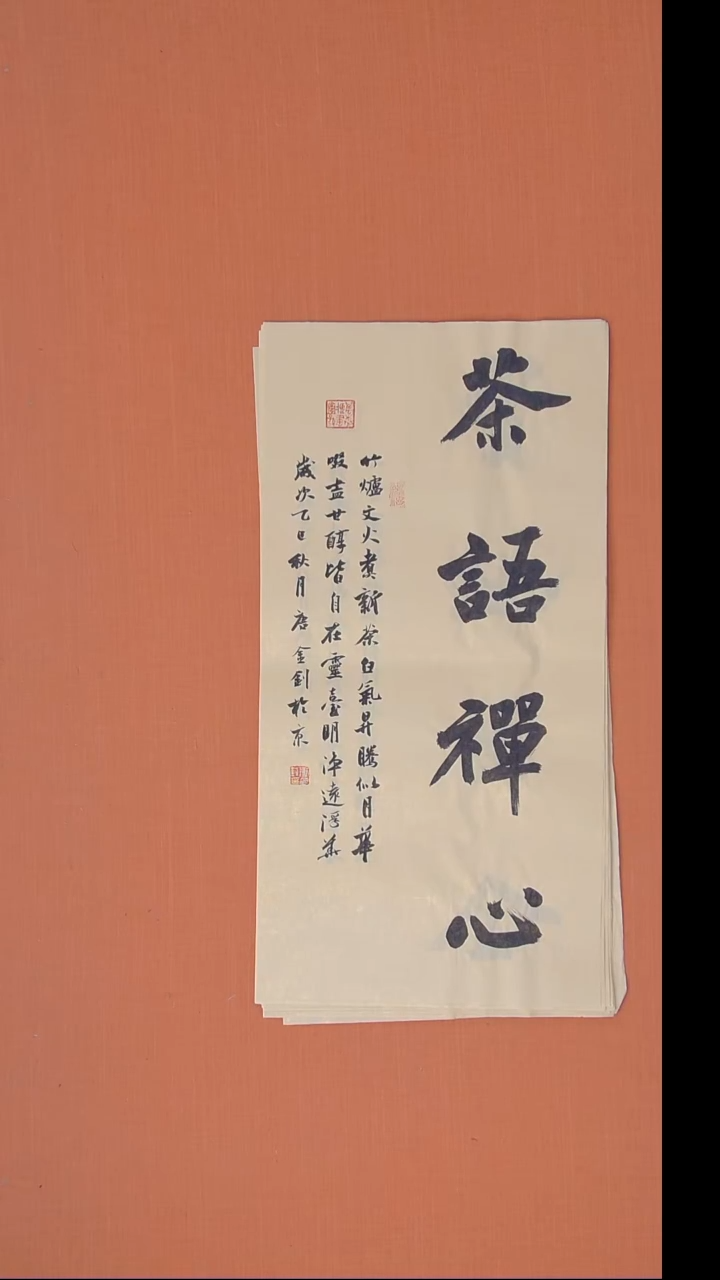 茶語禪心
竹爐文火煮新茶白氣昇騰似月華
啜盡甘醇皆自在靈臺明淨遠浮華
歲次乙巳秋月唐金劍於京